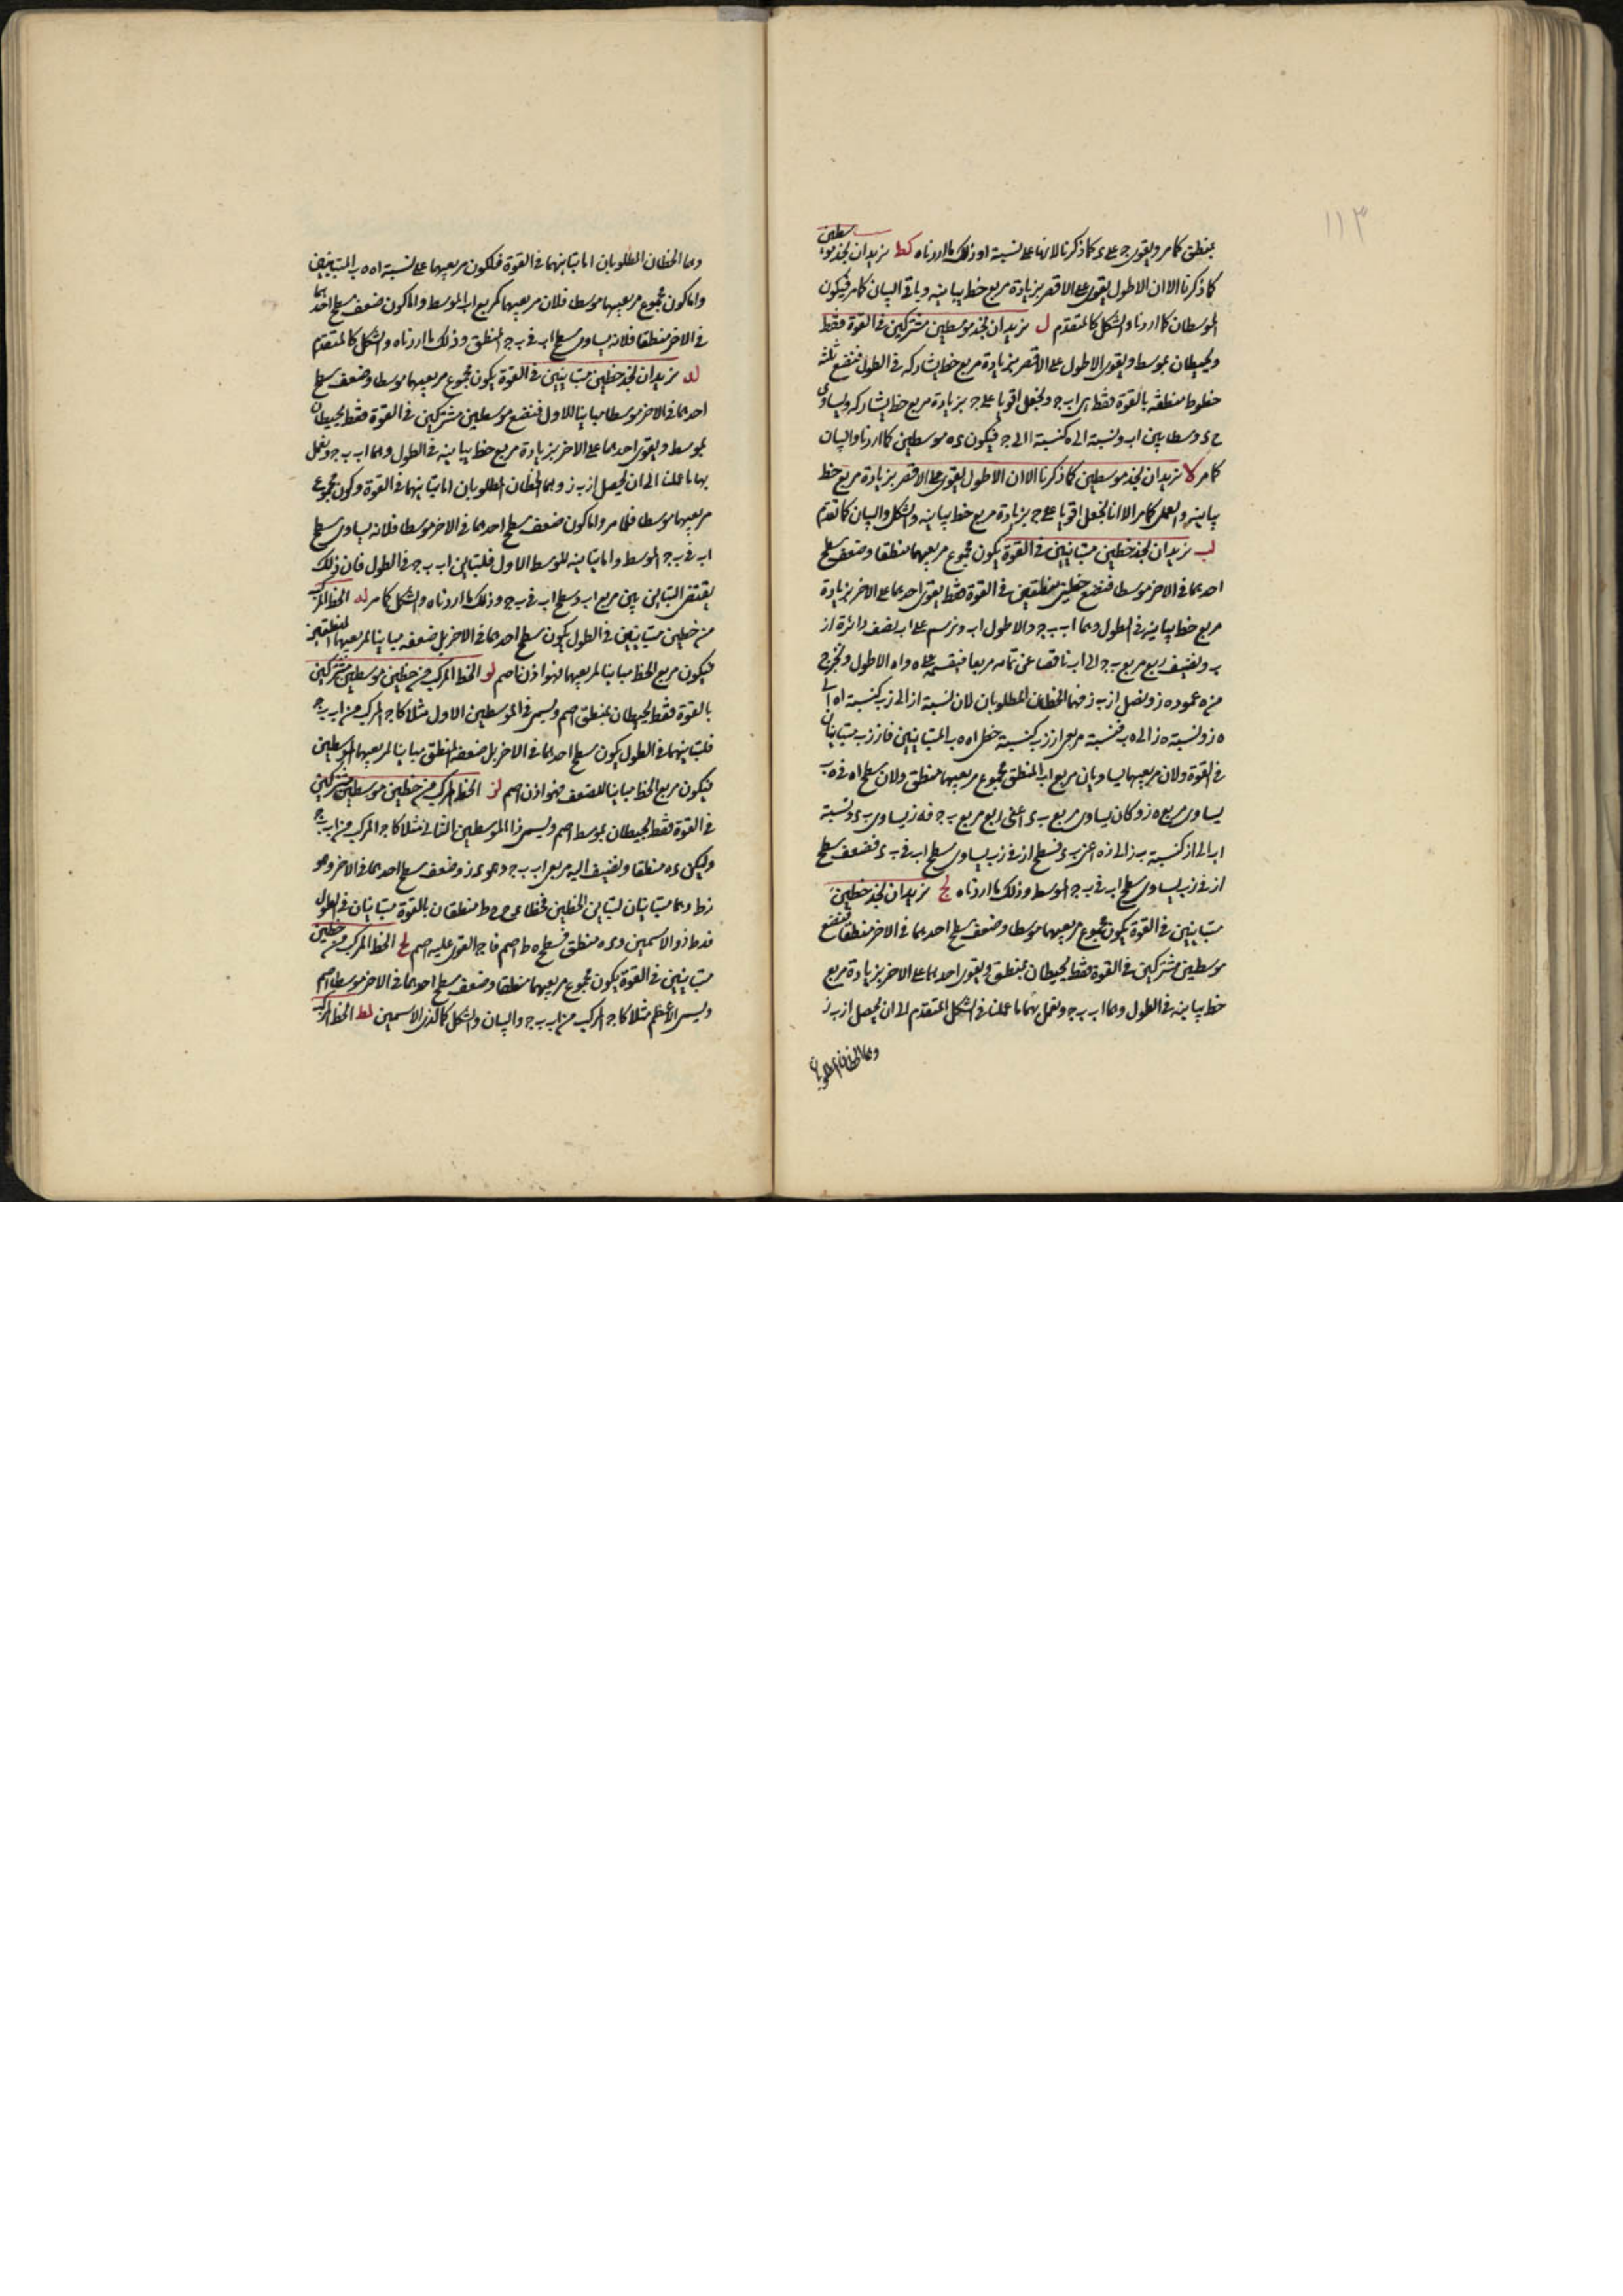 ١١٣
بمنطق كامر ويقوى ج على ء كما ذكرنا لانهما على نسبة او ذلك ما اردناه كط نريد ان نجد موسطين
كما ذكرنا الا ان الاطول يقوى على الاقصر بزيادة مربع خط يباينه وباقى البيان كامر فيكون
الموسطان كما اردنا والشكل كالمتقدم ل نريد ان نجد موسطين مشتركين فى القوة فقط
ويحيطان بموسط ويقوى الاطول على الاقصر بزيادة مربع خط يشاركه فى الطول فنضع ثلثة
خطوط منطقة بالقوة فقط اى اب ج ونجعل ا قويا على ج بزيادة مربع خط يشاركه وليساوى
ء وسطا بين اب ونسبة الى ه كنسبة ا الى ج فيكون ء ه موسطين كما اردنا والبيان
كامر لا نريد ان نجد موسطين كما ذكرنا الا ان الاطول يقوى على الاقصر بزيادة مربع خط
يباينه والعمل كامر الا انا نجعل ا قويا على ج بزيادة مربع خط يباينه والشكل والبيان كما تقدم
لب نريد ان نجد خطين متباينين فى القوة يكون مجموع مربعيهما منطقا وضعف سطح
احدهما فى الاخر موسطا فنضع خطين منطقين فى القوة فقط يقوى احدهما على الاخر بزيادة
مربع خط يباينه فى الطول وهما اب ب ج والاطول اب ونرسم على اب نصف دائرة از
ب ونضيف ربع مربع ب ج الى اب ناقصا عن تمامه مربعا فينقسم على ه واه الاطول ونخرج
من ه عمود ه ز ونصل از ب ز فهما الخطان المطلوبان لان نسبة از الى زب كنسبة اه الى
ه ز ونسبة ه ز الى ه ب فنسبة مربعى از زب كنسبة خطى اه ه ب المتباينين فاز زب متباينان
فى القوة ولان مربعيهما يساويان مربع اب المنطق مجموع مربعيهما منطق ولان سطح اه فى ه ب
يساوى مربع ه ز وكان يساوى مربع ب ء اعنى ربع مربع ب ج فه ز يساوى ب ء ونسبة
اب الى از كنسبة ب ز الى زه اعنى ب ء فسطح از فى زب يساوى سطح اب فى ب ء فضعف سطح
از فى زب يساوى سطح اب فى ب ج الموسط وذلك ما اردناه لج نريد ان نجد خطين
متباينين فى القوة يكون مجموع مربعيهما موسطا وضعف سطح احدهما فى الاخر منطقا فنضع
موسطين مشتركين فى القوة فقط يحيطان بمنطق ويقوى احدهما على الاخر بزيادة مربع
خط يباينه فى الطول وهما اب ب ج ونعمل بهما ما عملنا فى الشكل المتقدم الى ان يحصل از ب ز
وهما الخطان المطلوبان
وهما الخطان المطلوبان اما تباينهما فى القوة فلكون مربعيهما على نسبة اه ه ب المتباينين
واما كون مجموع مربعيهما موسطا فلان مربعيهما كمربع اب الموسط واما كون ضعف سطح احدهما
فى الاخر منطقا فلانه يساوى سطح اب فى ب ج المنطق وذلك ما اردناه والشكل كالمتقدم
لد نريد ان نجد خطين متباينين فى القوة يكون مجموع مربعيهما موسطا وضعف سطح
احدهما فى الاخر موسطا مباينا للاول فنضع موسطين مشتركين فى القوة فقط يحيطان
بموسط ويقوى احدهما على الاخر بزيادة مربع خط يباينه فى الطول وهما اب ب ج ونعمل
بهما ما عملنا الى ان يحصل از ب ز وهما الخطان المطلوبان اما تباينهما فى القوة وكون مجموع
مربعيهما موسطا فلما مر واما كون ضعف سطح احدهما فى الاخر موسطا فلانه يساوى سطح
اب فى ب ج الموسط واما تباينه للموسط الاول فلتباين اب ب ج فى الطول فان ذلك
يقتضى التباين بين مربع اب وسطح اب فى ب ج وذلك ما اردناه والشكل كامر له الخط المركب
من خطين متباينين فى الطول يكون سطح احدهما فى الاخر بل ضعفه مباينا لمربعيهما المنطقين
فيكون مربع الخط مباينا لمربعيهما فهو اذن اصم لو الخط المركب من خطين موسطين مشتركين
بالقوة فقط يحيطان بمنطق اصم ويسمى ذى الموسطين الاول مثلا كاج المركب من اب ب ج
فلتباينهما فى الطول يكون سطح احدهما فى الاخر بل ضعفه المنطق مباينا لمربعيهما الموسطين
فيكون مربع الخط مباينا للضعف فهو اذن اصم لز الخط المركب من خطين موسطين مشتركين
فى القوة فقط يحيطان بموسط اصم ويسمى ذا الموسطين الثانى مثلا كاج المركب من اب ب ج
وليكن ء ه منطقا ونضيف اليه مربعى اب ب ج وهو ء ز وضعف سطح احدهما فى الاخر وهو
زط وهما متباينان لتباين الخطين فخطا ء ح ح ط منطقان بالقوة متباينان فى الطول
فء ط ذو الاسمين و ء ه منطق فسطح ه ط اصم فاج القوى عليه اصم لح الخط المركب من خطين
متباينين فى القوة يكون مجموع مربعيهما منطقا وضعف سطح احدهما فى الاخر موسطا اصم
ويسمى الاعظم مثلا كاج المركب من اب ب ج والبيان والشكل كما لذى الاسمين لط الخط المركب